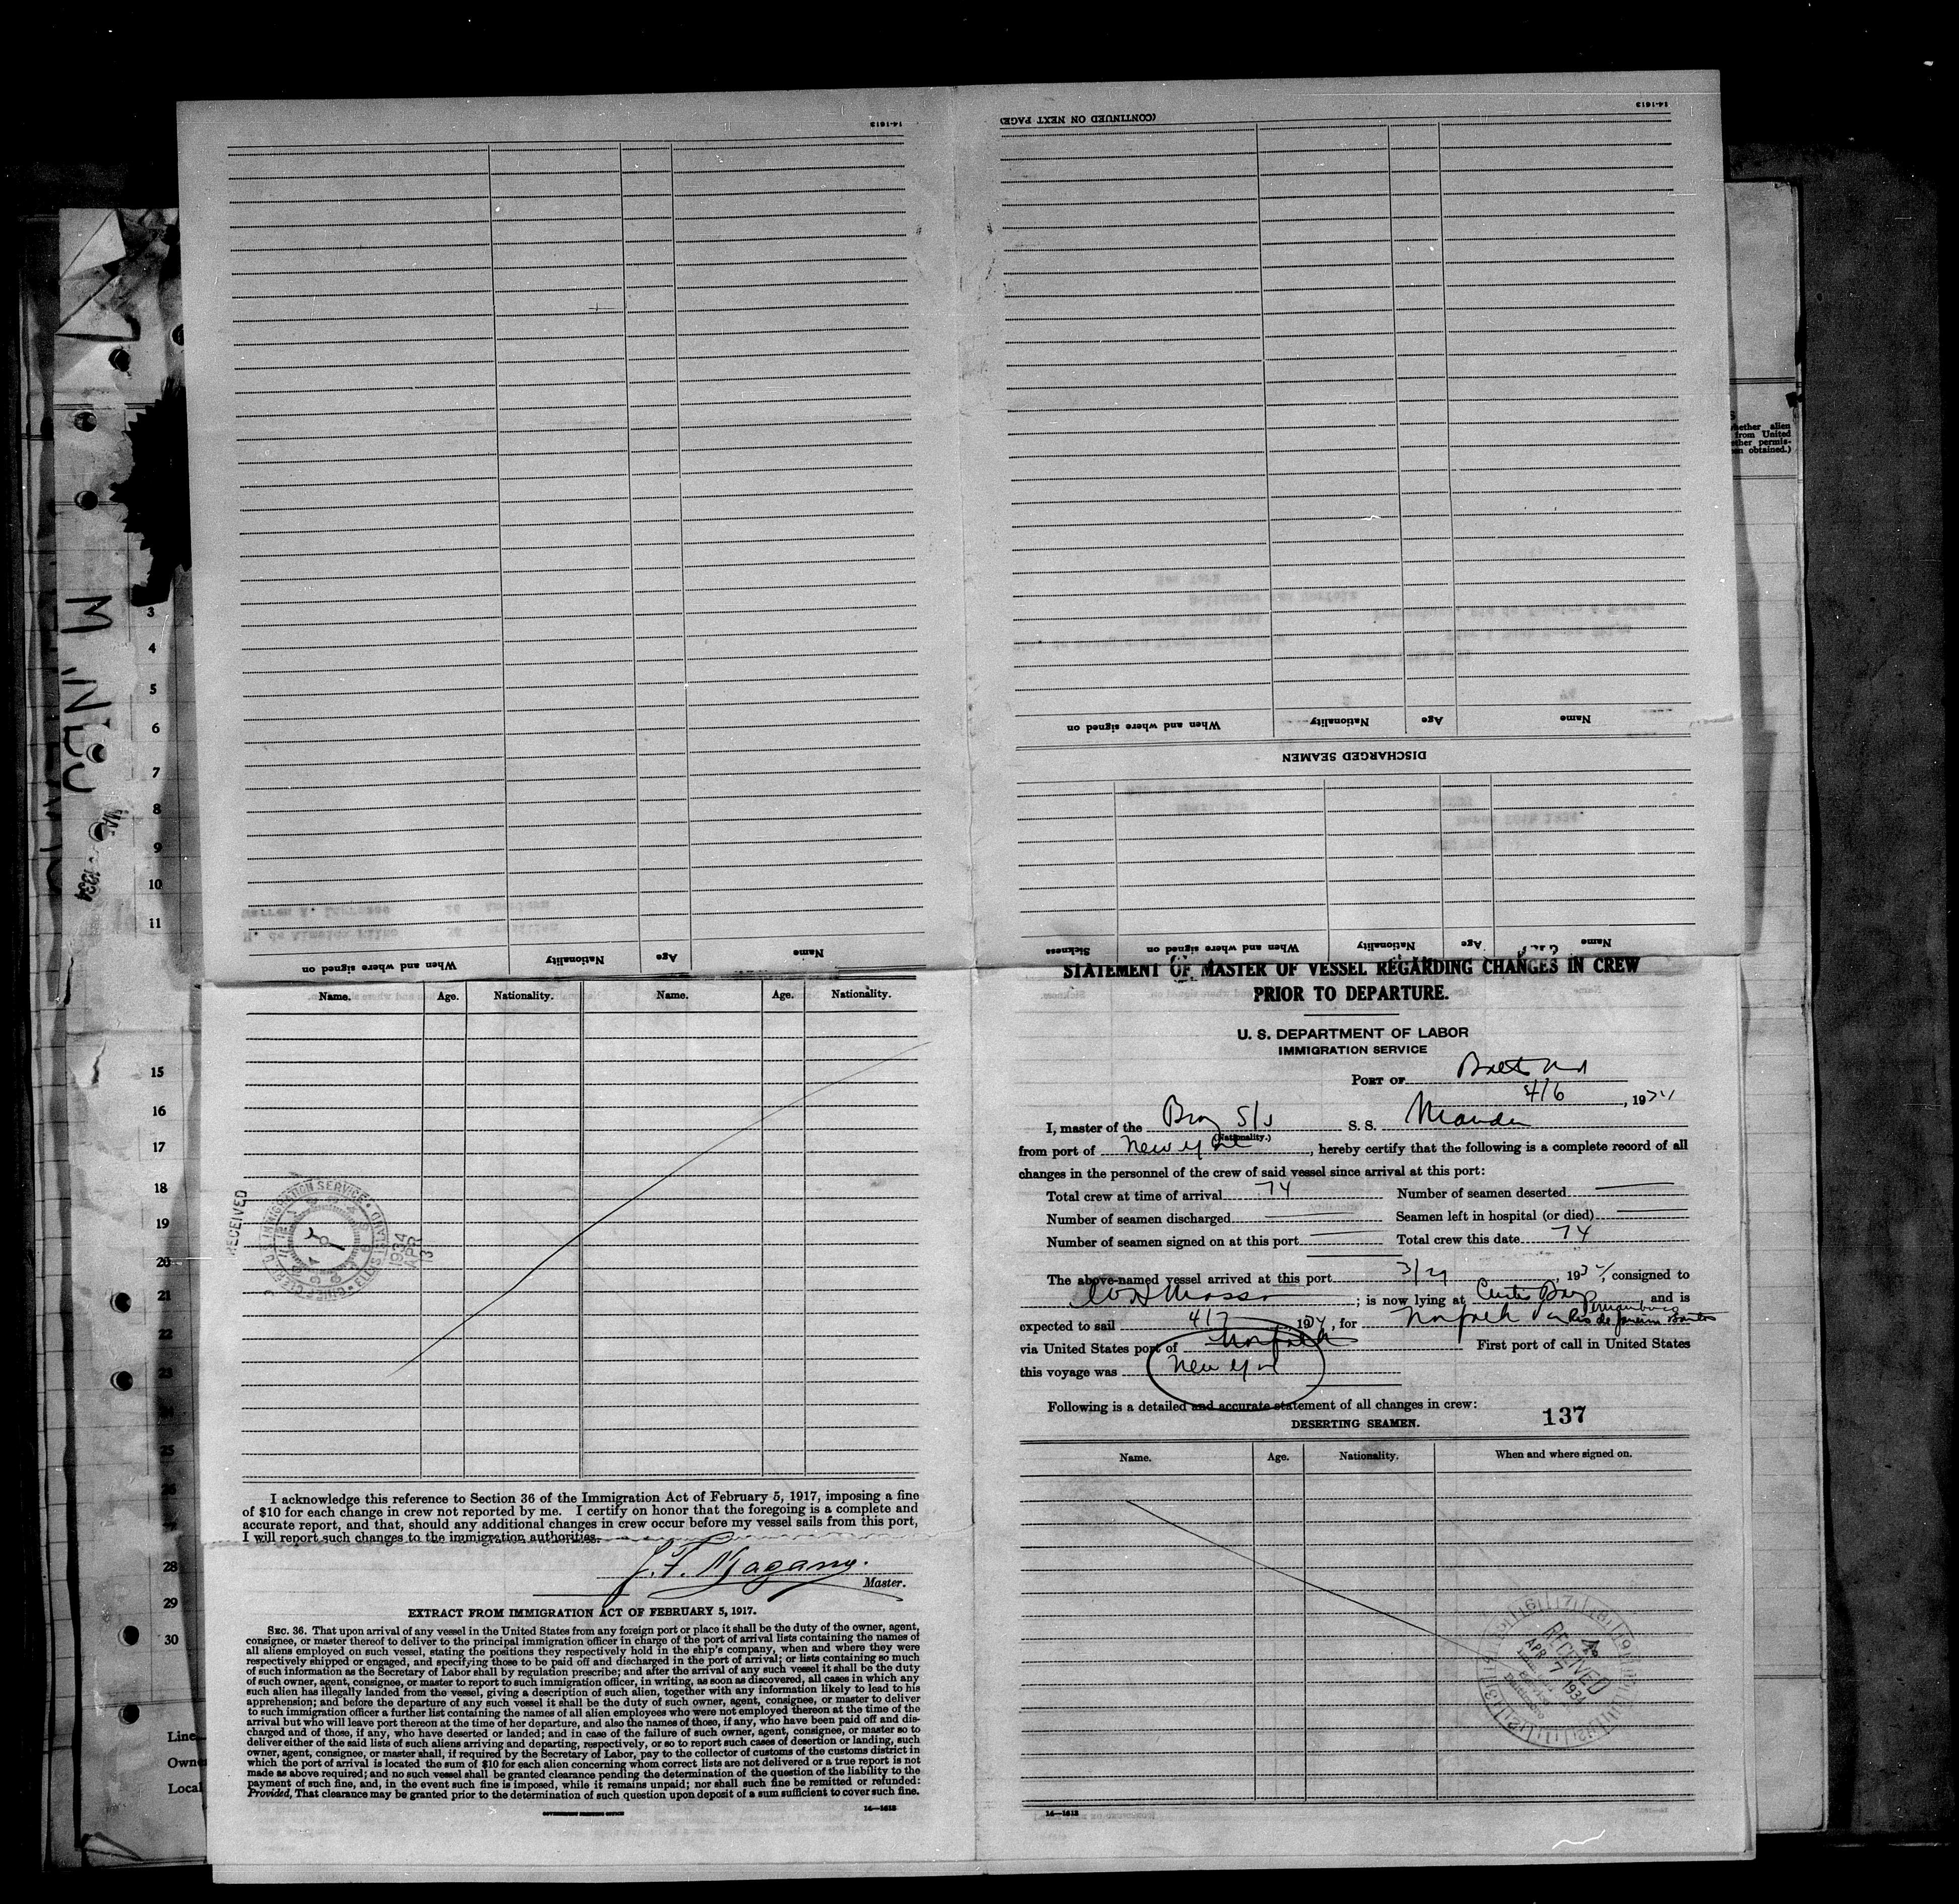 14-1613
14-1613
(CONTINUED ON NEXT PAGE)
Name Age Nationality When and where signed on
DISCHARGED SEAMEN
Name Age Nationality When and where signed on Sickness
Name Age Nationality When and where signed on
hether alien
from United
ether permis-
en obtained.)
3
4
5
6
7
8
9
10
11
15
16
17
18
19
20
21
22
23
25
28
29
30
Line
Owne
Local
Name. Age. Nationality. Name. Age. Nationality.
RECEIVED
U.S. IMMIGRATION SERVICE
1934
APR
13
I acknowledge this reference to Section 36 of the Immigration Act of February 5, 1917, imposing a fine
of $10 for each change in crew not reported by me. I certify on honor that the foregoing is a complete and
accurate report, and that, should any additional changes in crew occur before my vessel sails from this port,
I will report such changes to the immigration authorities.
Master.
EXTRACT FROM IMMIGRATION ACT OF FEBRUARY 5, 1917.
SEC. 36. That upon arrival of any vessel in the United States from any foreign port or place it shall be the duty of the owner, agent,
consignee, or master thereof to deliver to the principal immigration officer in charge of the port of arrival lists containing the names of
all aliens employed on such vessel, stating the positions they respectively hold in the ship's company, when and where they were
respectively shipped or engaged, and specifying those to be paid off and discharged in the port of arrival; or lists containing so much
of such information as the Secretary of Labor shall by regulation prescribe; and after the arrival of any such vessel it shall be the duty
of such owner, agent, consignee, or master to report to such immigration officer, in writing, as soon as discovered, all cases in which any
such alien has illegally landed from the vessel, giving a description of such alien, together with any information likely to lead to his
apprehension; and before the departure of any such vessel it shall be the duty of such owner, agent, consignee, or master to deliver
to such immigration officer a further list containing the names of all alien employees who were not employed thereon at the time of the
arrival but who will leave port thereon at the time of her departure, and also the names of those, if any, who have been paid off and dis-
charged and of those, if any, who have deserted or landed; and in case of the failure of such owner, agent, consignee, or master so to
deliver either of the said lists of such aliens arriving and departing, respectively, or so to report such cases of desertion or landing, such
owner, agent, consignee, or master shall, if required by the Secretary of Labor, pay to the collector of customs of the customs district in
which the port of arrival is located the sum of $10 for each alien concerning whom correct lists are not delivered or a true report is not
made as above required; and no such vessel shall be granted clearance pending the determination of the question of the liability to the
payment of such fine, and, in the event such fine is imposed, while it remains unpaid; nor shall such fine be remitted or refunded:
Provided, That clearance may be granted prior to the determination of such question upon deposit of a sum sufficient to cover such fine.
GOVERNMENT PRINTING OFFICE 14—1613
STATEMENT OF MASTER OF VESSEL REGARDING CHANGES IN CREW
PRIOR TO DEPARTURE.
U. S. DEPARTMENT OF LABOR
IMMIGRATION SERVICE
PORT OF Balto Md
4/6, 1934
I, master of the Braz S/S S. S.
(Nationality.)
from port of New York, hereby certify that the following is a complete record of all
changes in the personnel of the crew of said vessel since arrival at this port:
Total crew at time of arrival 74 Number of seamen deserted
Number of seamen discharged Seamen left in hospital (or died)
Number of seamen signed on at this port Total crew this date 74
The above-named vessel arrived at this port 3/29, 1934, consigned to
; is now lying at Curtis Bay and is
Pernambuco
expected to sail 4/7, 1934, for Norfolk via Rio de Janeiro Santos
via United States port of Norfolk First port of call in United States
this voyage was New York
Following is a detailed and accurate statement of all changes in crew:
137
DESERTING SEAMEN.
Name. Age. Nationality. When and where signed on.
RECEIVED
APR 7 1934
14—1613